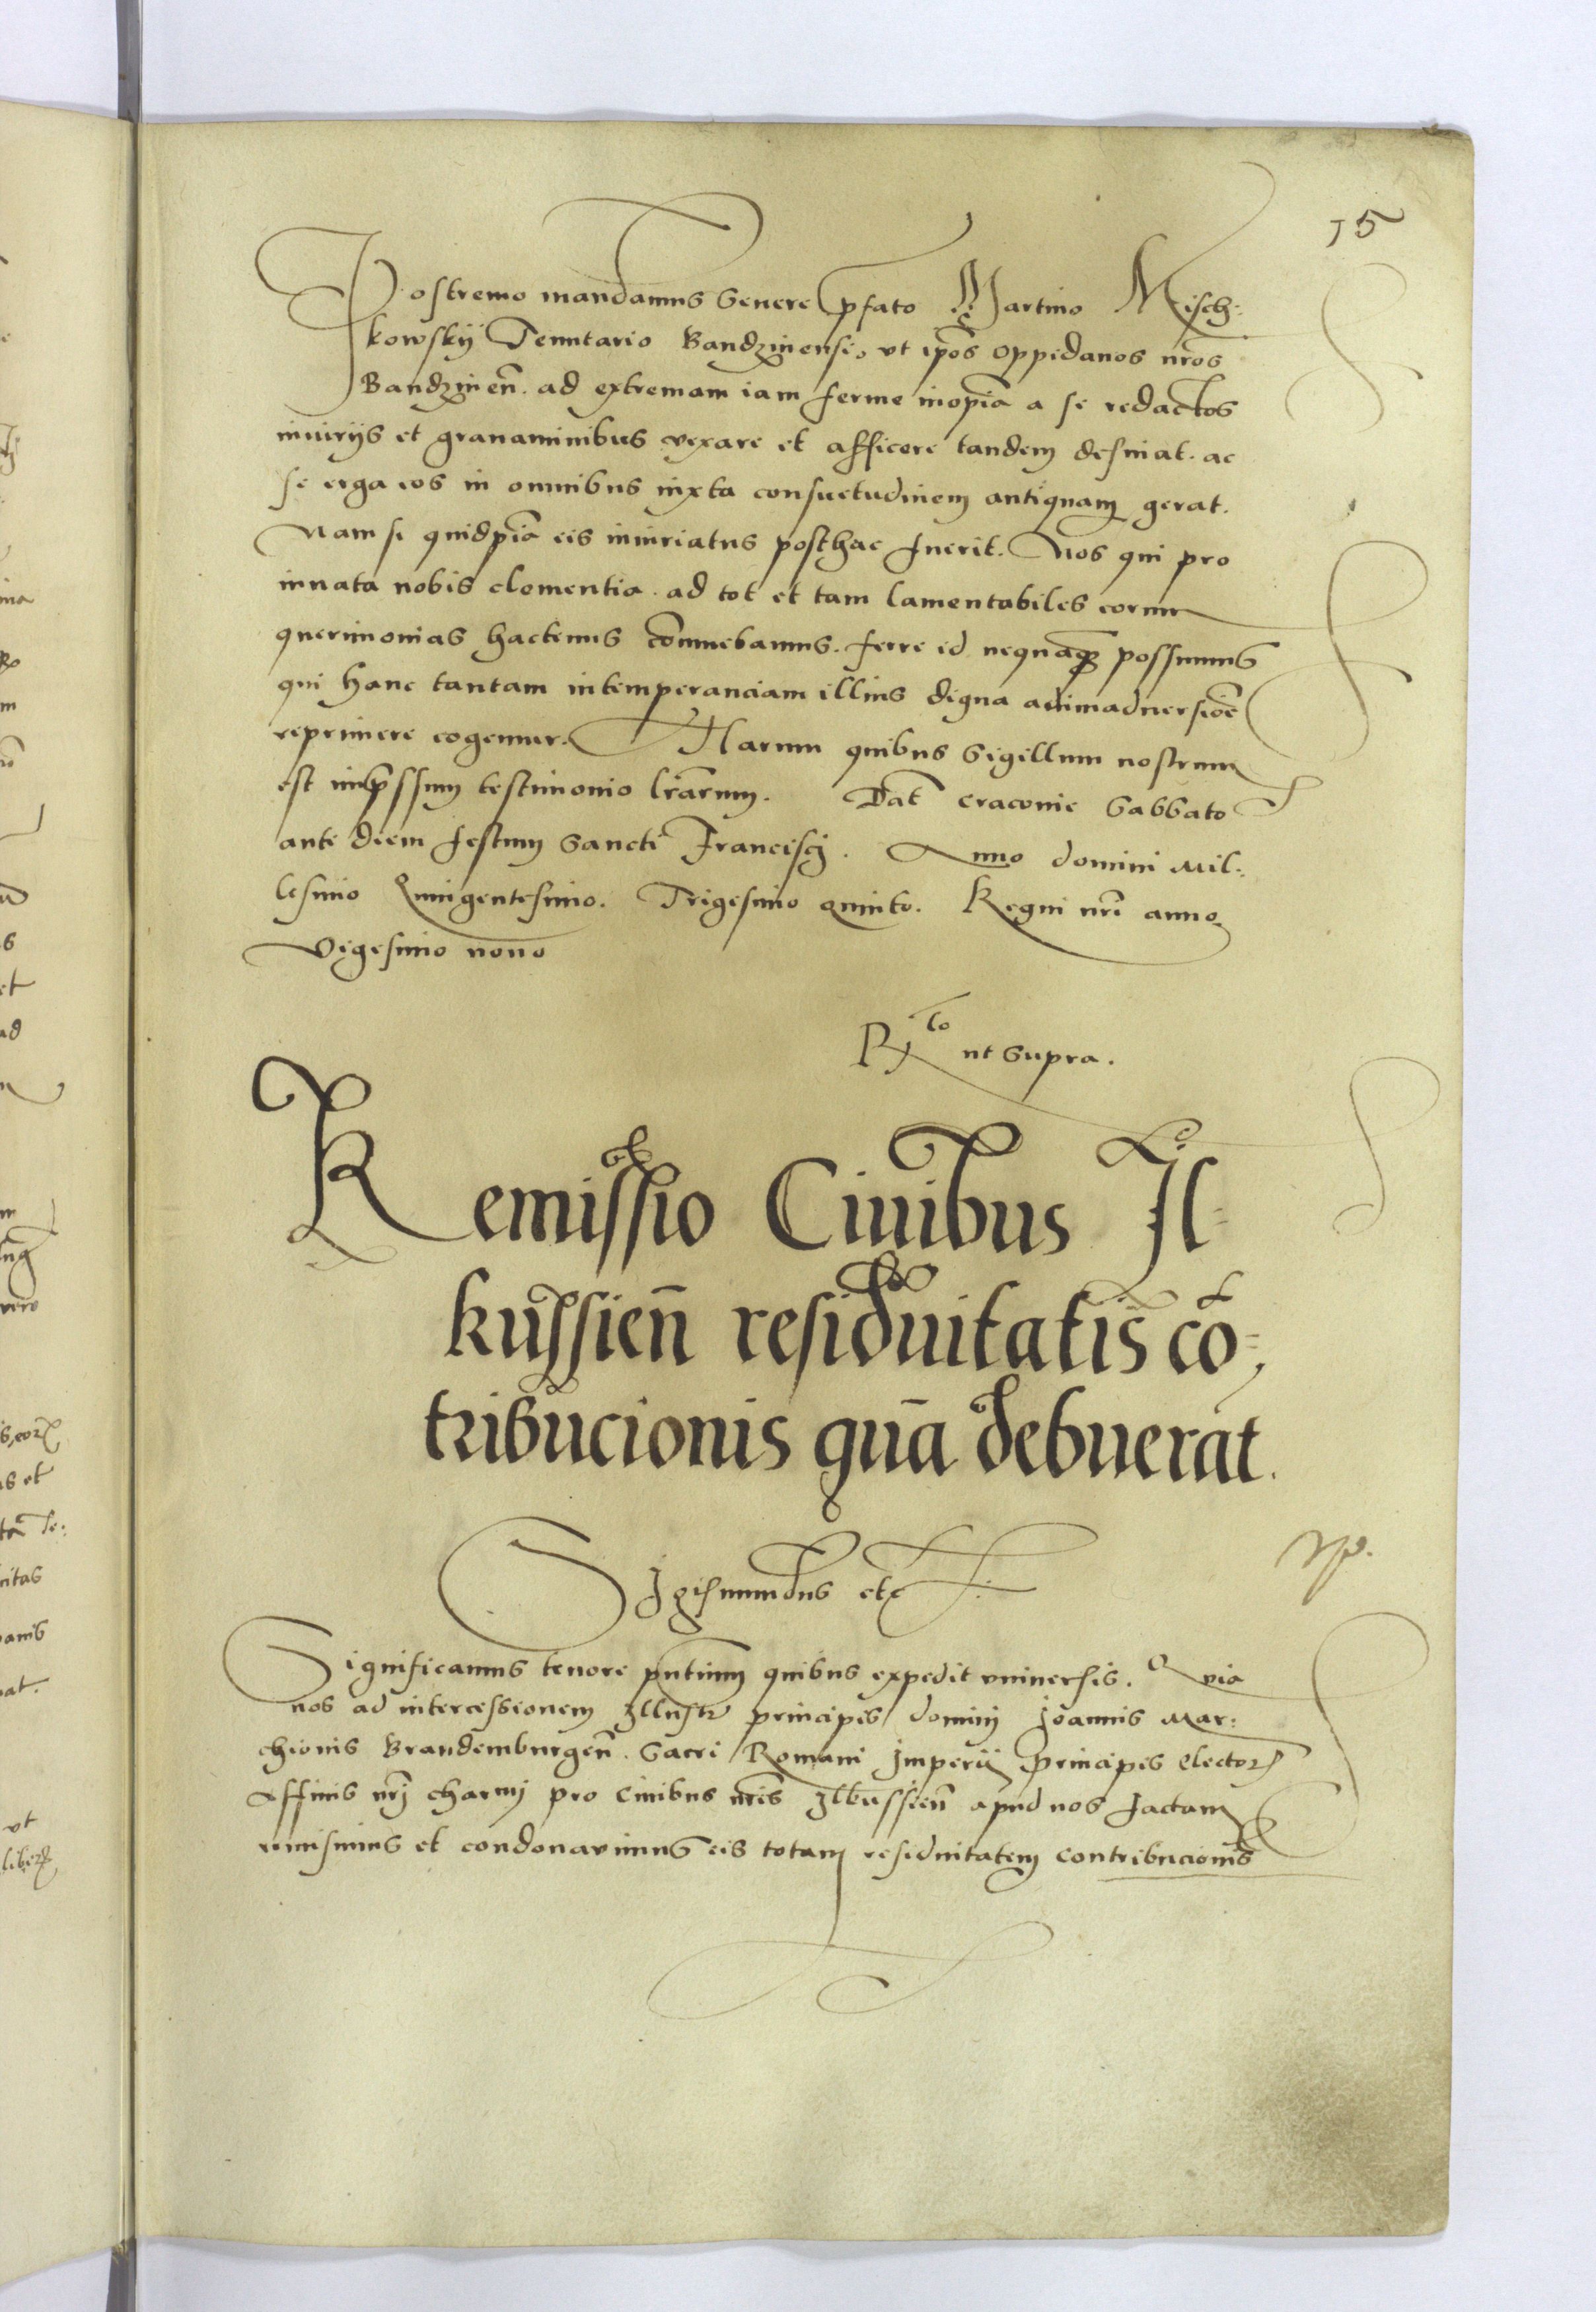 15
Postremo mandamus Severe pfato Martino Misch:
kowskÿ Tenutario Bandzinensi, vt ip̃os oppidanos nr̃os
Bandzineñ. ad extremam iam ferme inopiã a se redactos
iniurijs et grauaminibus vexare et afficere tandem desinat. ac
se erga eos in omnibus iuxta consuetudinem antiquam gerat.
Nam si quidpiã eis iniuriatus posthac fuerit. Nos qui pro
innata nobis clementia. ad tot et tam lamentabiles eorum
querimonias hactenus cõniuebamus. ferre id nequaqꝫ possumus
qui hanc tantam intemperanciam illius digna animaduersiõe
reprimere cogemur. Harum quibus Sigillum nostrum
est imp̃ssum testimonio lr̃arum. Dat̃ Cracouie Sabbato
ante diem festum Sancti Francisci. Anno domini Mil:
lesimo Quingentesimo. Trigesimo quinto. Regni nr̃i anno
vigesimo nono
Rto ut Supra.
Remissio Ciuibus Il=
kussieñ residuitatis cõ=
tribucionis quã debuerãt.
Sigismundus etc
Significamus tenore pñtium quibus expedit vniuersis. Quia
nos ad intercessionem Illustr̃ principis domini Joannis Mar:
chionis Brandemburgeñ. Sacri Romani Imperij Principis Elector̃
Affinis nr̃j charmi pro Ciuibus nr̃is Ilkussieñ apud nos factam
remisimus et condonauimus eis totam residuitatem contribucionis